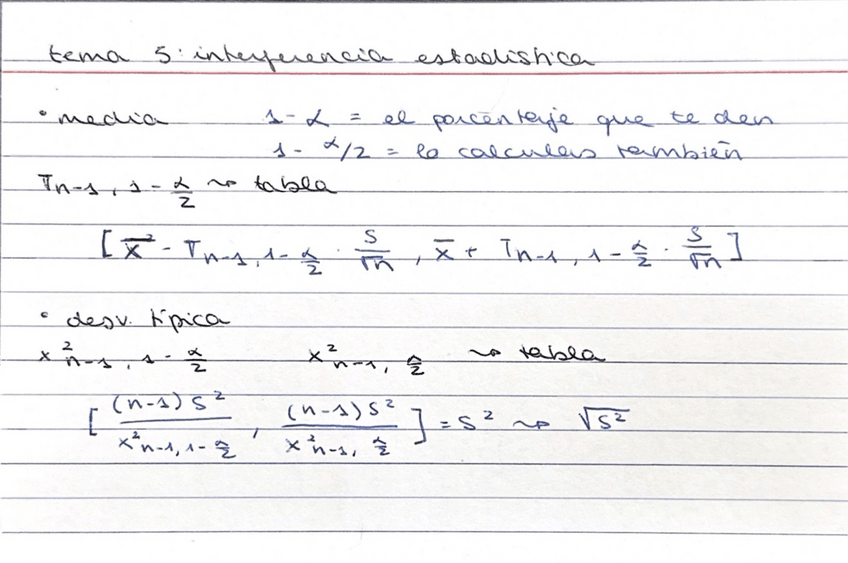 tema 5: interferencia estadística
• media 1-α = el porcentaje que te den
1-α/2 = lo calculas también
Tn-1, 1-α/2 ⇝ tabla
[x̄ - Tn-1, 1-α/2 · S/√n, x̄ + Tn-1, 1-α/2 · S/√n]
• desv. típica
x²n-1, 1-α/2 x²n-1, α/2 ⇝ tabla
[(n-1)S²/x²n-1, 1-α/2, (n-1)S²/x²n-1, α/2] = S² ⇝ √S²